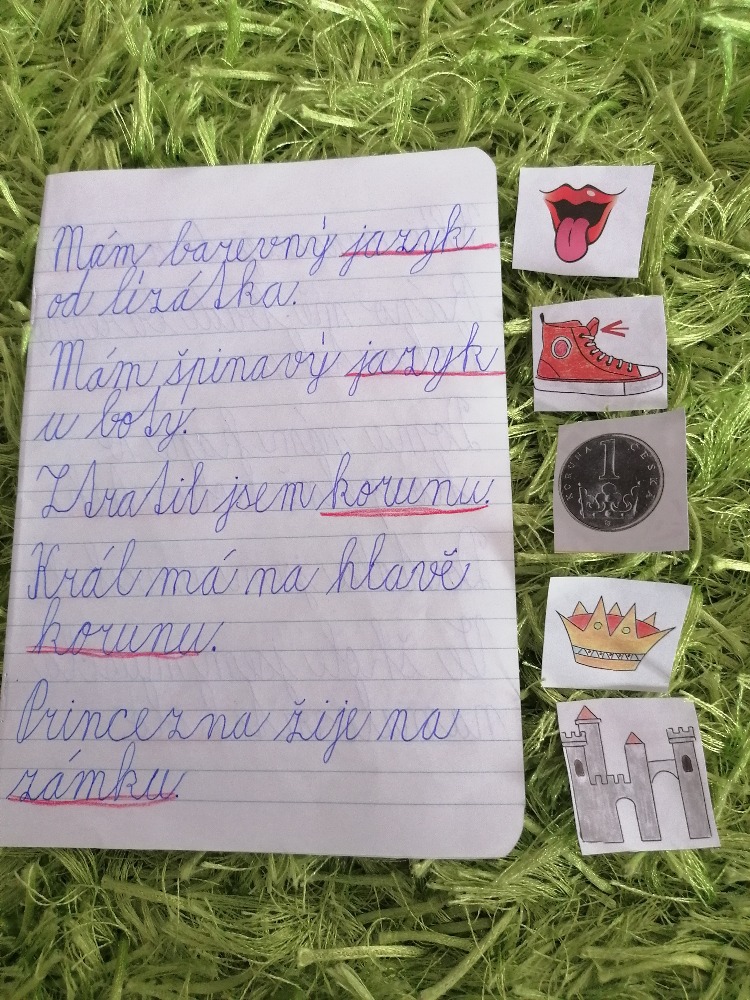 Mám barevný jazyk
od lízátka.
Mám špinavý jazyk
u boty.
Ztratil jsem korunu.
Král má na hlavě
korunu.
Princezna žije na
zámku.
1
KORUNA ČESKÁ